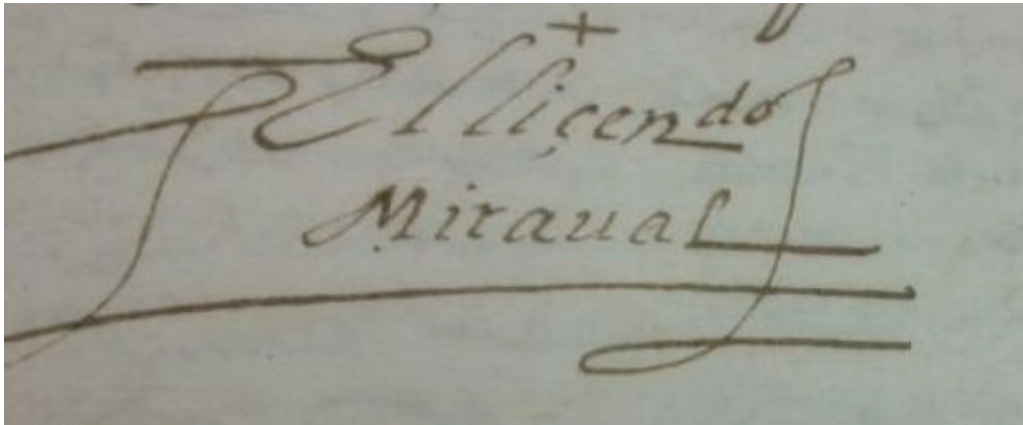 El liçen^do
Miraual